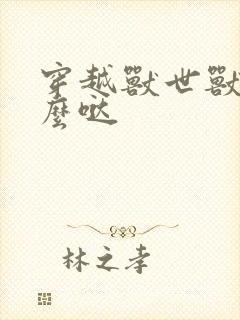 穿越獸世獸
麼噠
林之孝